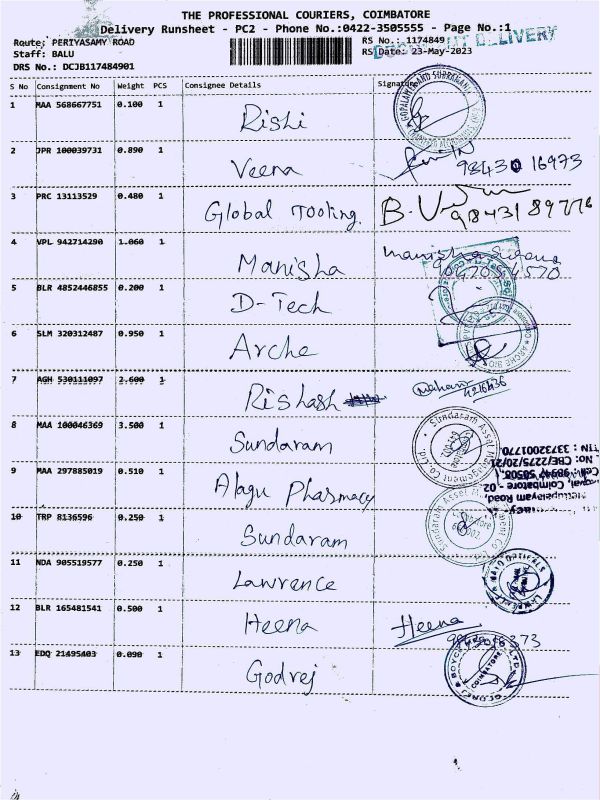 THE PROFESSIONAL COURIERS, COIMBATORE
Delivery Runsheet - PC2 - Phone No.:0422-3505555 - Page No.:1
Route: PERIYASAMY ROAD RS No.: 1174849
Staff: BALU RS Date: 23-May-2023 DELIVERY
DRS No.: DCJB117484901
S No Consignment No Weight PCS Consignee Details Signature
1 MAA 568667751 0.100 1 Rishi
2 JPR 100039731 0.890 1 Veena 98430 16973
3 PRC 13113529 0.480 1 Global Tooling.
4 VPL 942714290 1.060 1 Manisha
5 BLR 4852446855 0.200 1 D-Tech
6 SLM 320312487 0.950 1 Arche
7 AGH 530111097 2.600 1 Rishash
8 MAA 100046369 3.500 1 Sundaram Sundaram Asset Management Co Ltd
9 MAA 297885019 0.510 1 Alagu Pharmacy
Mettupalayam Road,
Coimbatore - 02
No: CBE/2275/20/21
TIN : 33732001770
10 TRP 8136596 0.250 1 Sundaram Sundaram Asset Management Co Ltd Coimbatore
11 NDA 905519577 0.250 1 Lawrence
12 BLR 165481541 0.500 1 Heena Heena
13 EDQ 21495403 0.090 1 Godrej GODREJ & BOYCE COIMBATORE